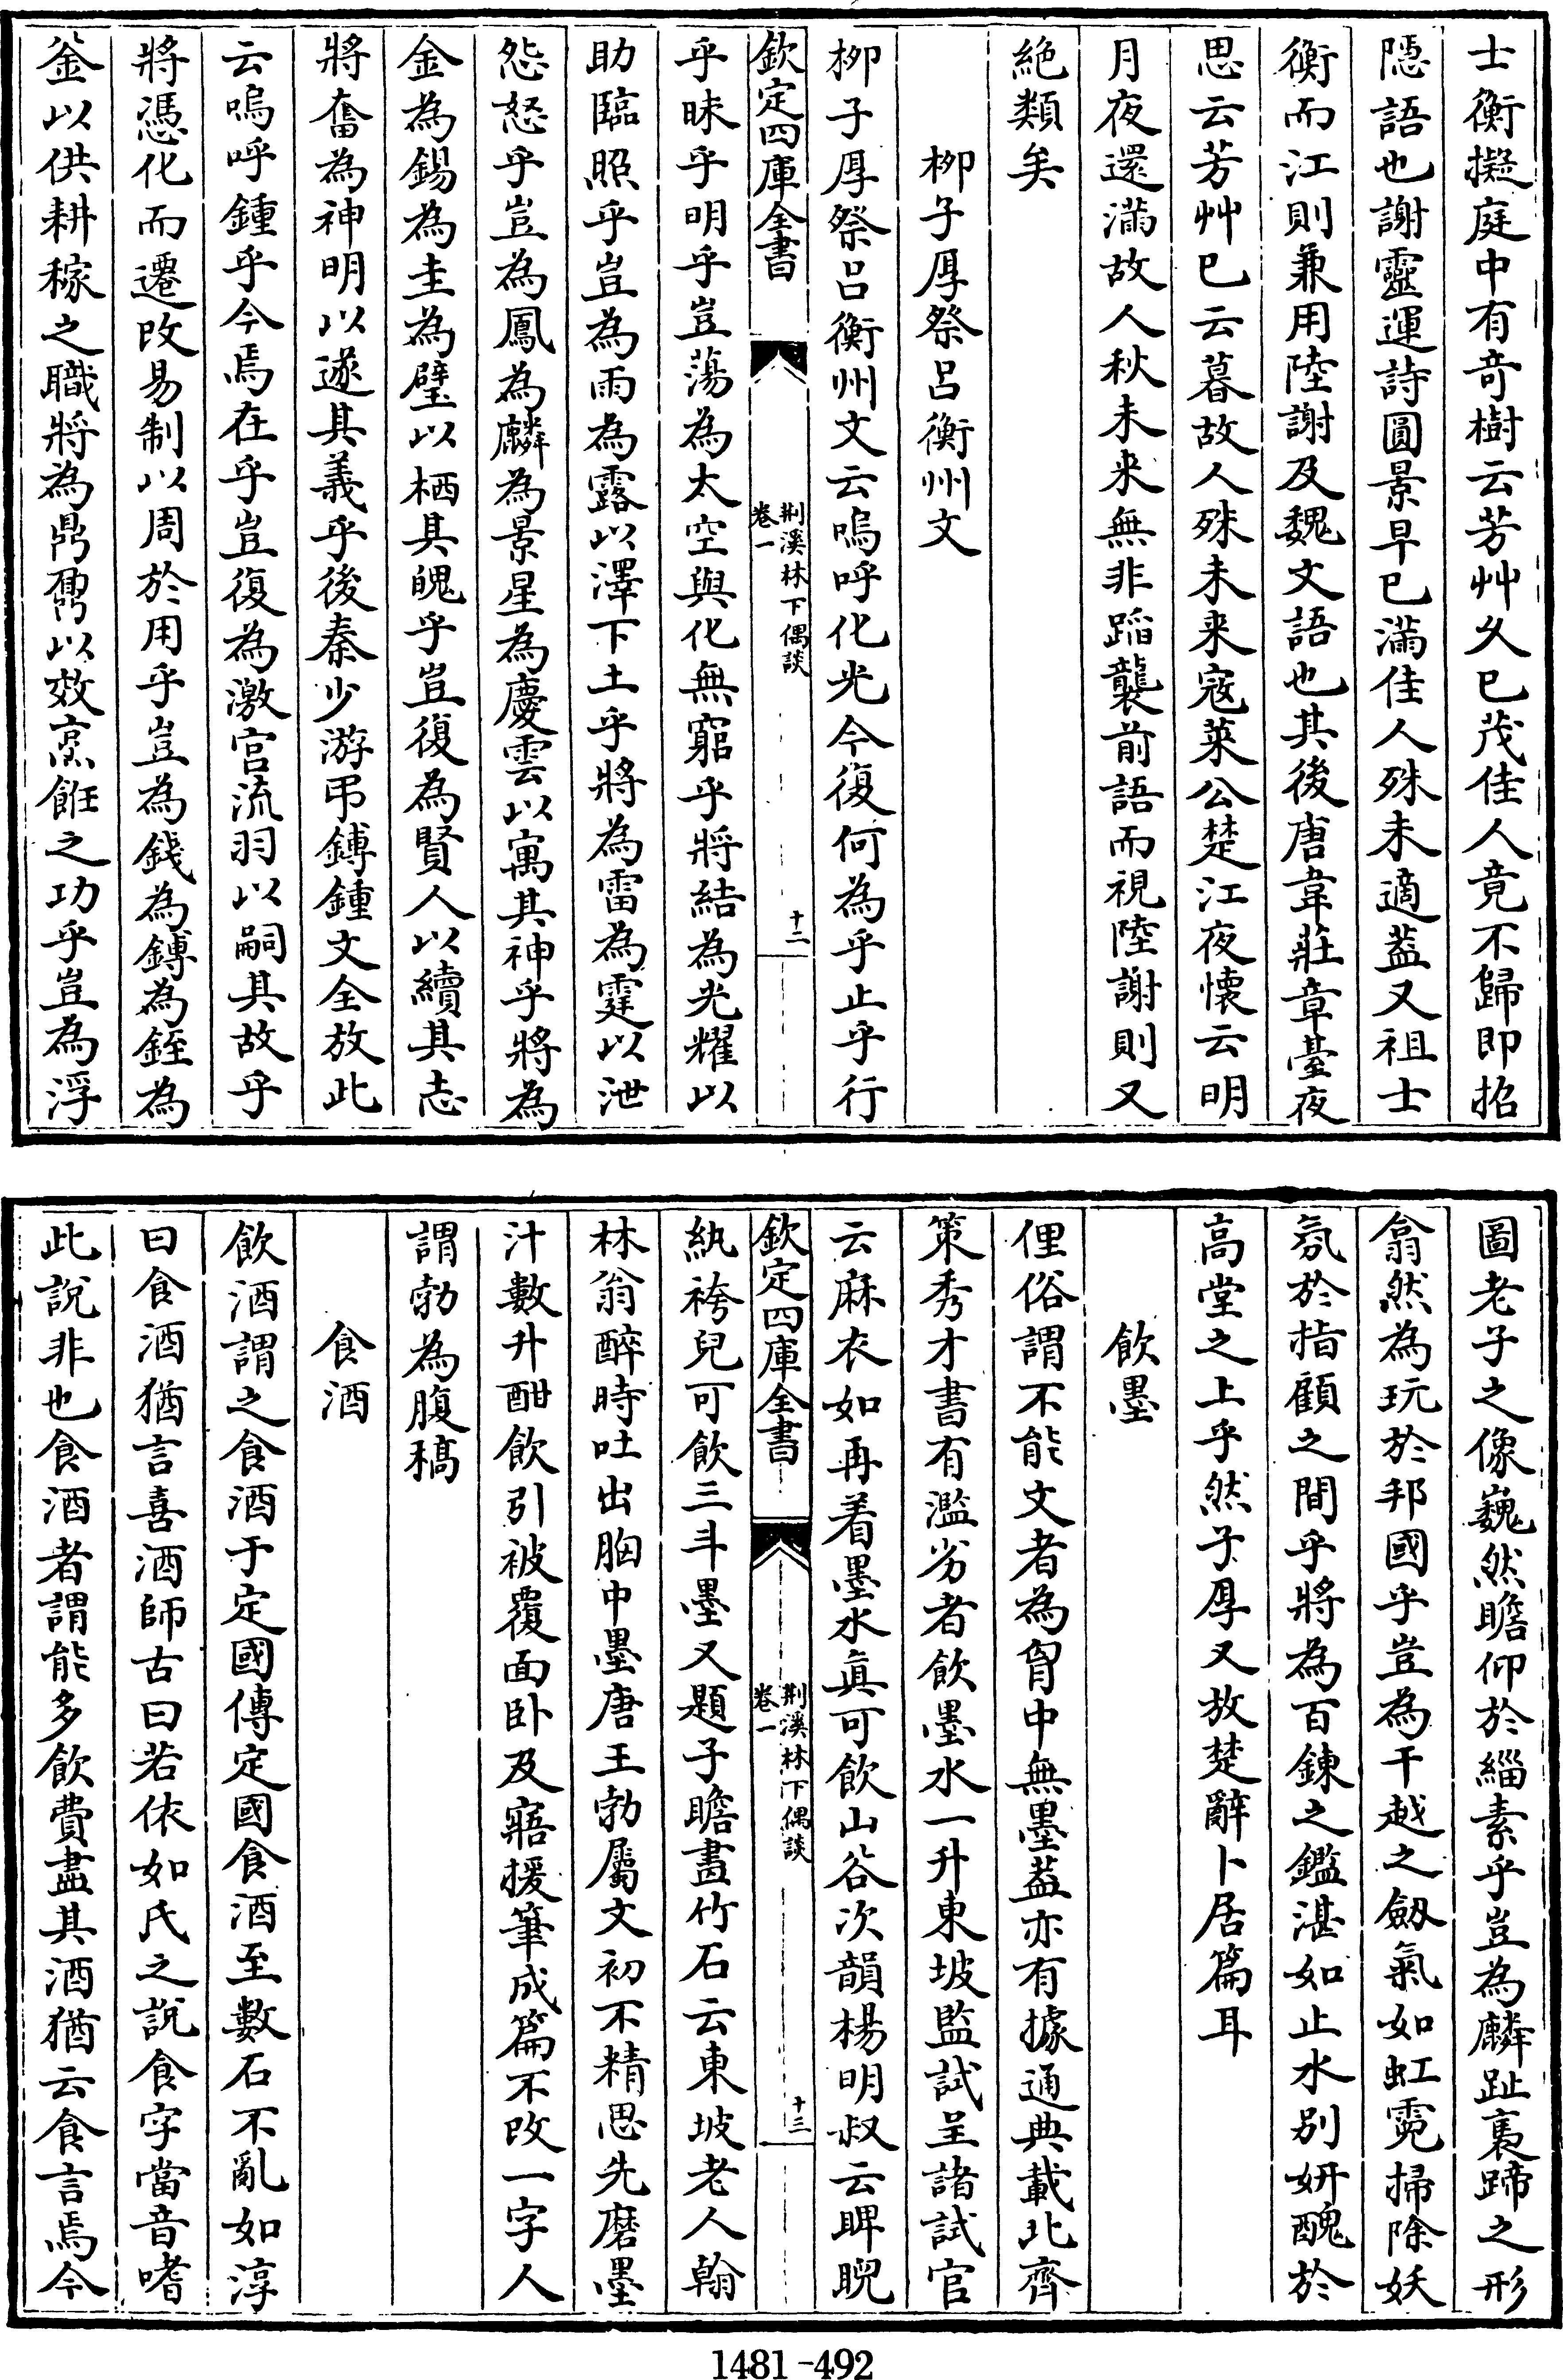 士衡擬庭中有奇樹云芳艸久已茂佳人竟不歸即招
隱語也謝靈運詩圓景早已滿佳人殊未適葢又祖士
衡而江則兼用陸謝及魏文語也其後唐韋莊章臺夜
思云芳艸已云暮故人殊未来寇萊公楚江夜懐云明
月夜還滿故人秋未来無非蹈襲前語而視陸謝則又
絶類矣
栁子厚祭呂衡州文
栁子厚祭呂衡州文云嗚呼化光今復何為乎止乎行
欽定四庫全書
荆溪林下偶談
卷一
十二
乎昧乎明乎豈蕩為太空與化無窮乎將結為光耀以
助臨照乎豈為雨為露以澤下土乎將為雷為霆以泄
怨怒乎豈為鳳為麟為景星為慶雲以寓其神乎將為
金為錫為圭為璧以栖其魄乎豈復為賢人以續其志
將奮為神明以遂其義乎後秦少游弔鏄鍾文全放此
云嗚呼鍾乎今焉在乎豈復為激宫流羽以嗣其故乎
將憑化而遷改易制以周於用乎豈為錢為鏄為銍為
釜以供耕稼之職將為鼎鼐以效烹飪之功乎豈為浮
圖老子之像巍然瞻仰於緇素乎豈為麟趾褭蹄之形
翕然為玩於邦國乎豈為干越之劔氣如虹霓掃除妖
氛於指顧之間乎將為百鍊之鑑湛如止水别妍醜於
高堂之上乎然子厚又放楚辭卜居篇耳
飲墨
俚俗謂不能文者為胷中無墨葢亦有據通典載北齊
策秀才書有濫劣者飲墨水一升東坡監試呈諸試官
云麻衣如再着墨水眞可飲山谷次韻楊明叔云睥睨
欽定四庫全書
荆溪林下偶談
卷一
十三
紈袴兒可飲三斗墨又題子瞻畫竹石云東坡老人翰
林翁醉時吐出胸中墨唐王勃屬文初不精思先磨墨
汁數升酣飲引被覆面卧及寤援筆成篇不改一字人
謂勃為腹稿
食酒
飲酒謂之食酒于定國傳定國食酒至數石不亂如淳
曰食酒猶言喜酒師古曰若依如氏之說食字當音嗜
此說非也食酒者謂能多飲費盡其酒猶云食言焉今
1481-492